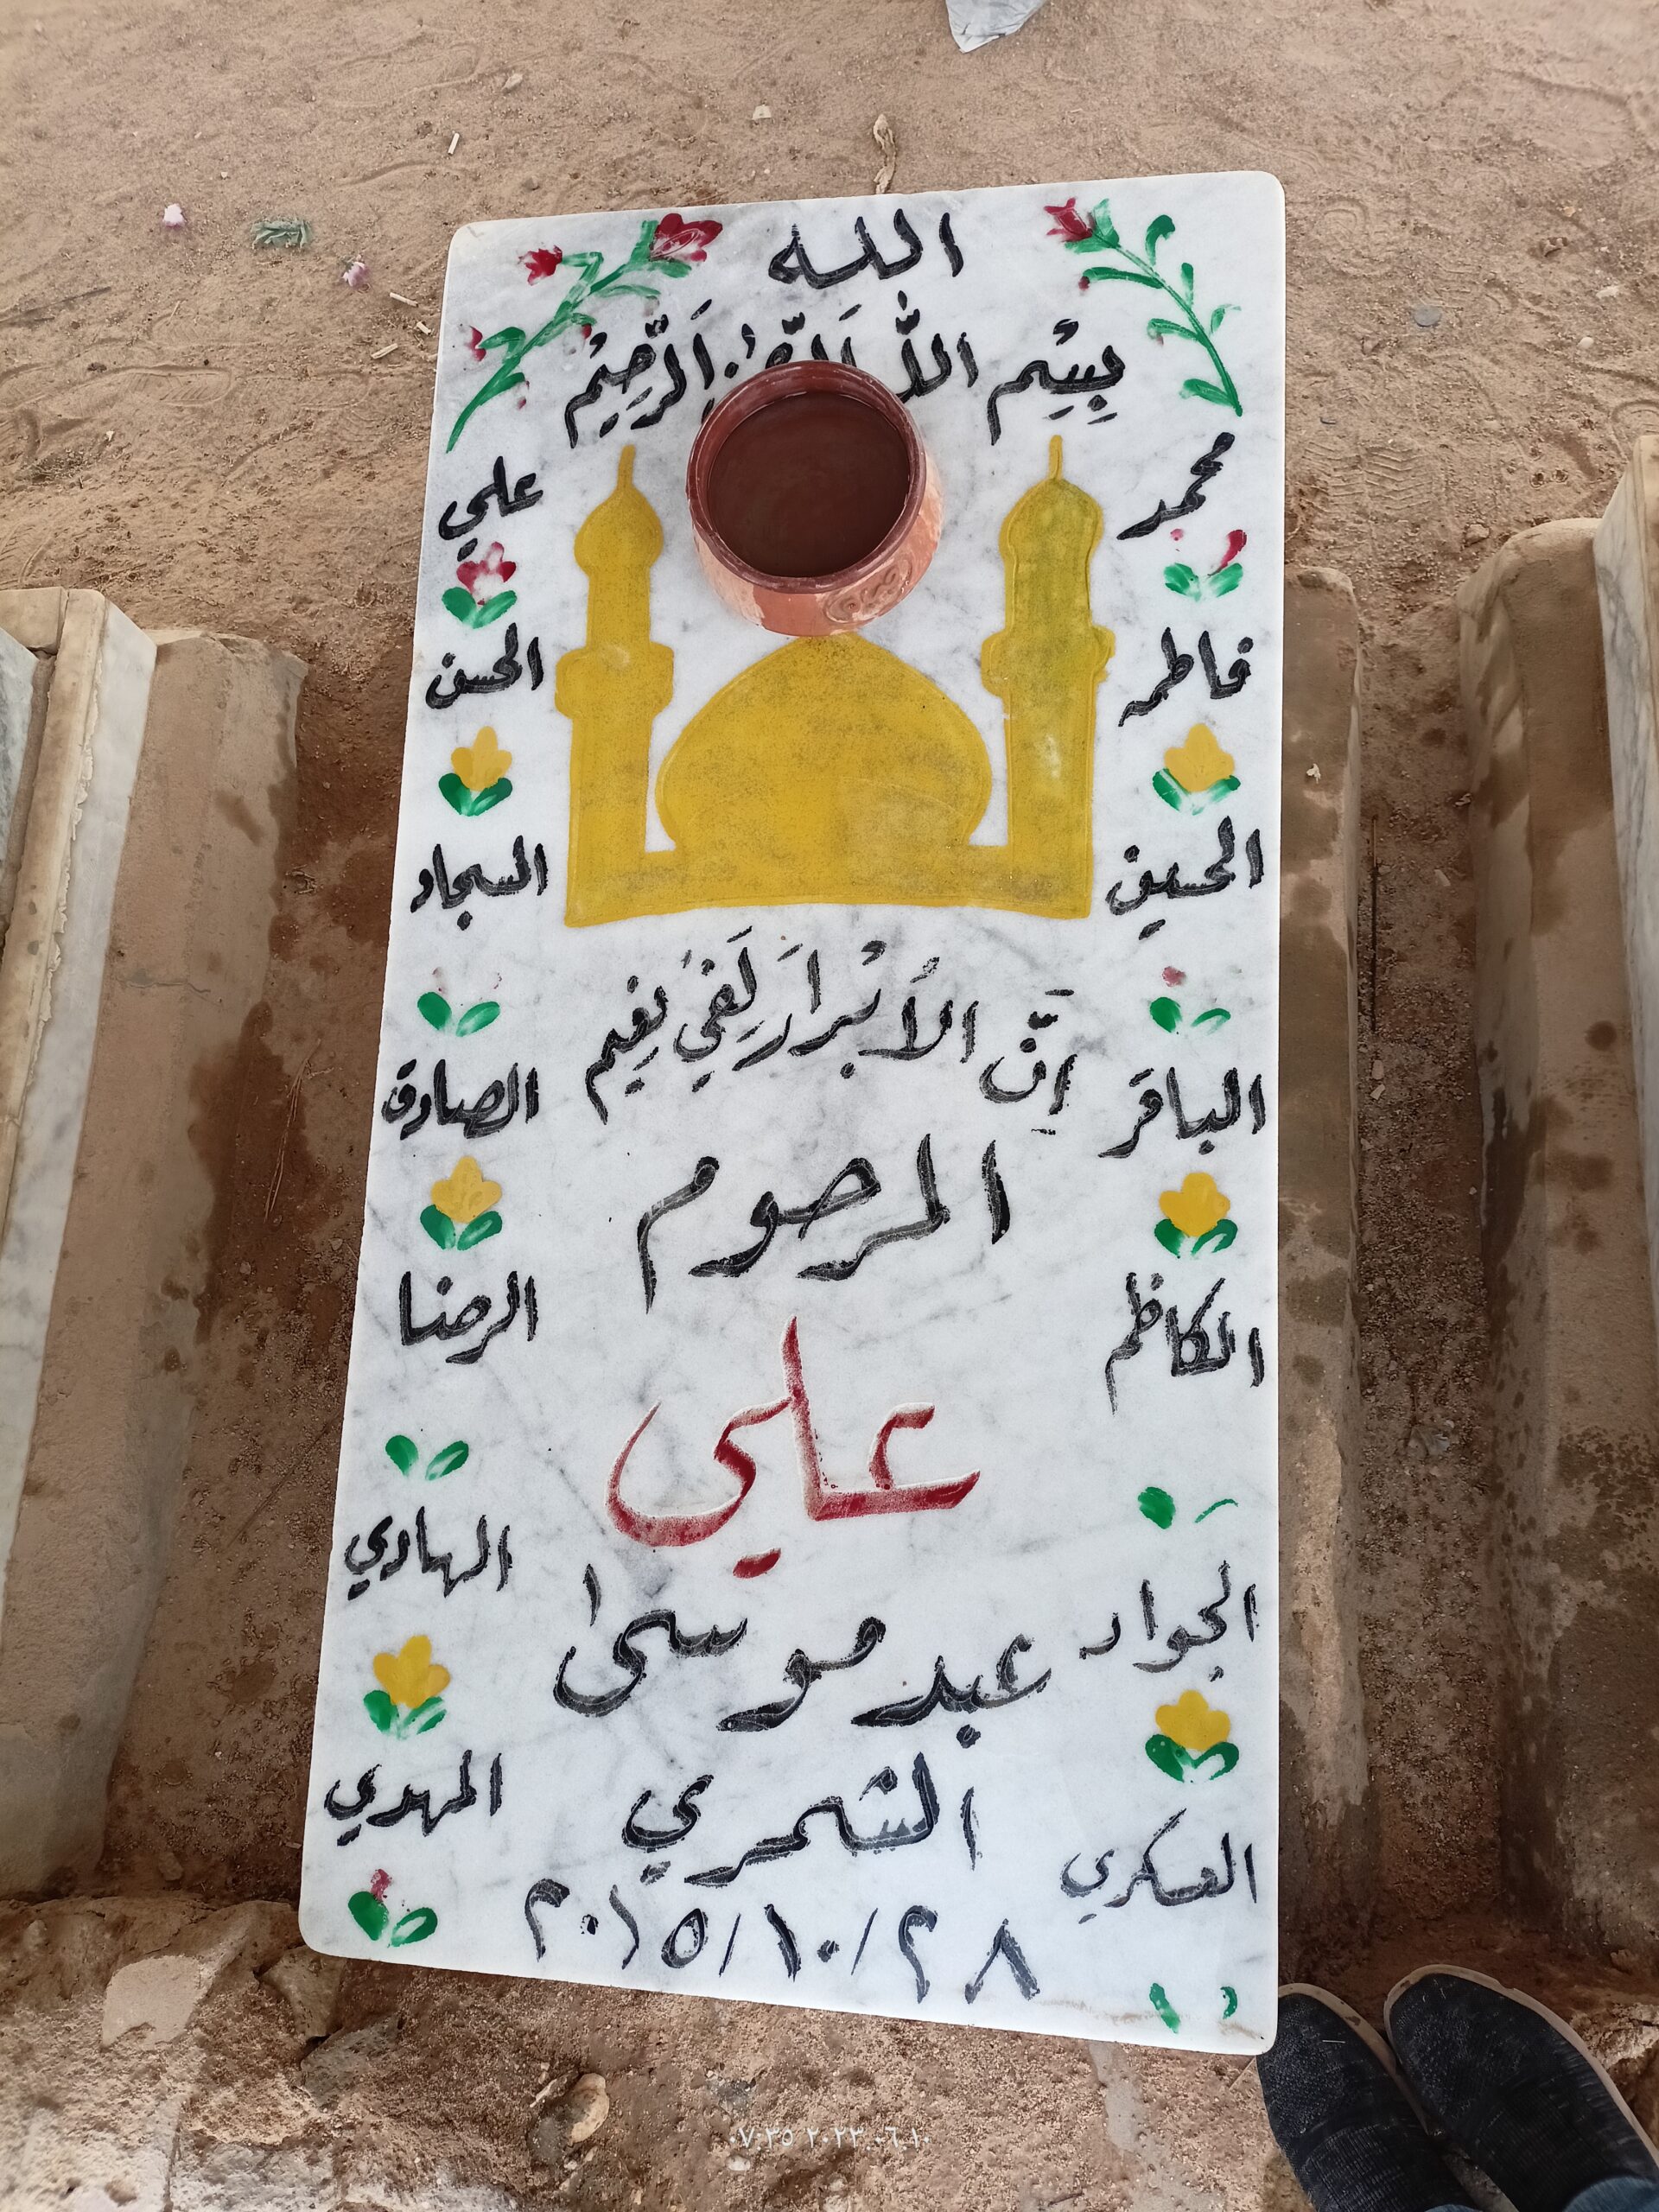 الله
بِسْمِ اللّٰهِ الرَّحْمٰنِ الرَّحِيْمْ
محمد
علي
فاطمه
الحسن
الحسين
السجاد
إِنَّ الأَبْرَارَ لَفِي نَعِيم
الباقر
الصادق
المرحوم
الكاظم
الرضا
علي
الجواد
الهادي
عبد موسى
العسكري
المهدي
الشمري
٢٠١٥/١٠/٢٨
٠٧:٣٥ ٢٠٢٣.٠٦.١٠